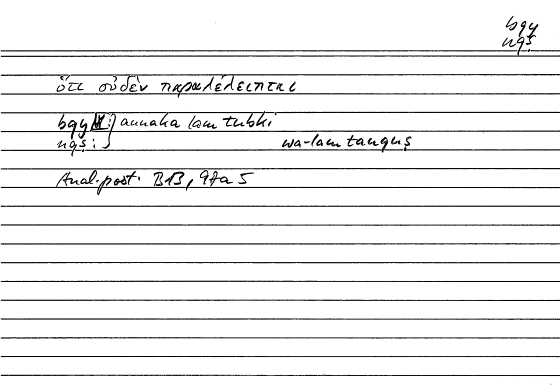 bqy
nqṣ
ὅτι οὐδὲν παραλέλειπται
bqy : } annaka lam tubki
nqṣ : wa-lam tanquṣ
Anal. post. B 13, 97a 5